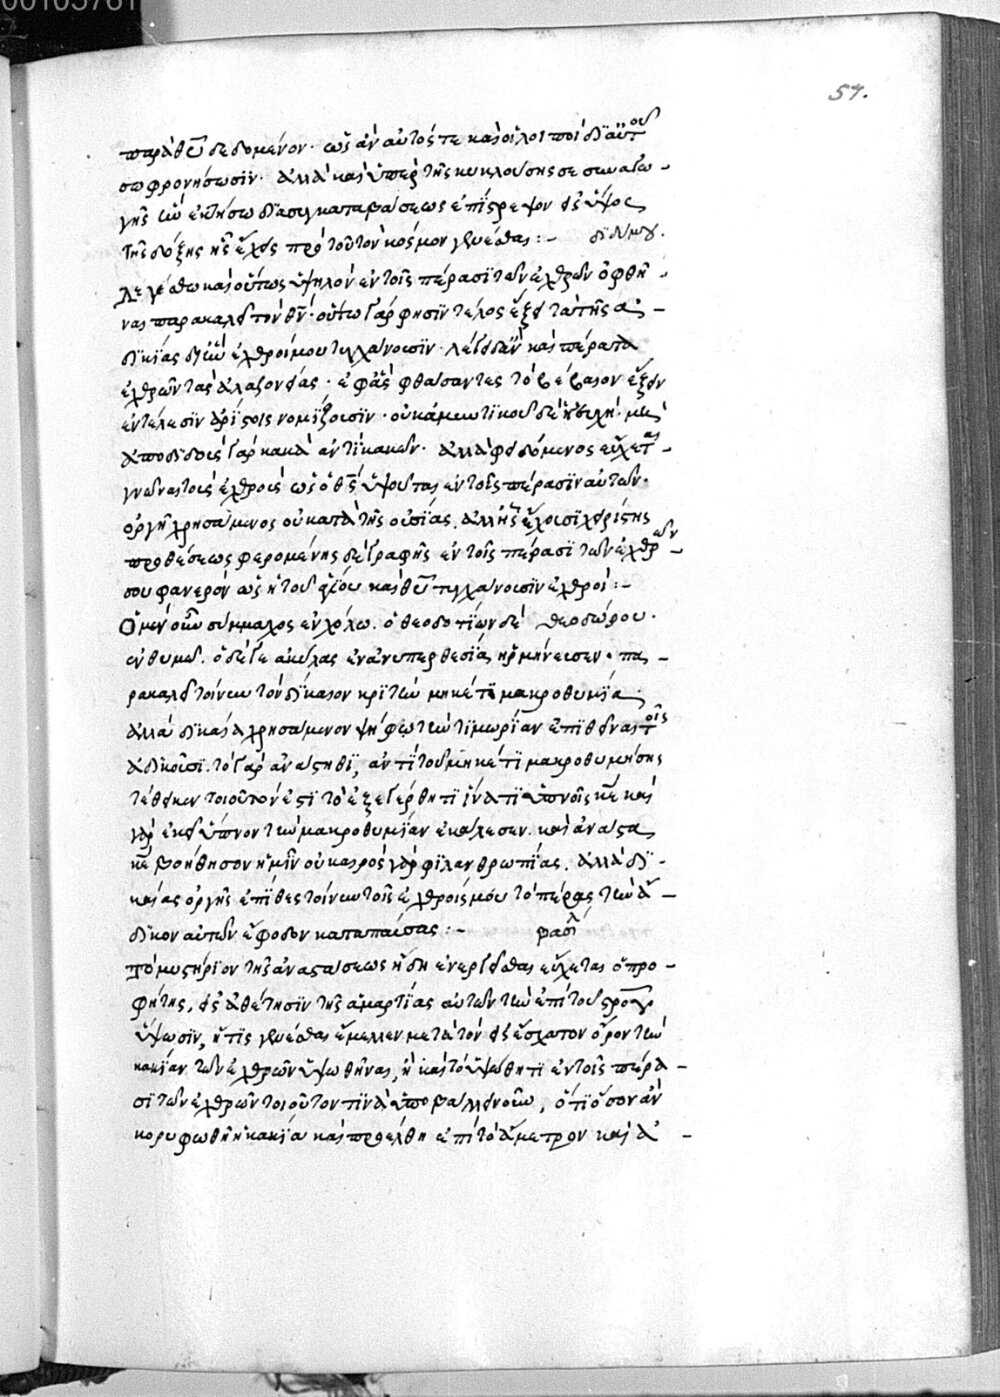 57.
παρὰ θῦ δεδομένον· ὡς ἂν αὐτός τε καὶ οἱ λοιποὶ δι αὐτοῦ
σωφρονήσωσιν· ἀλλὰ καὶ ὑπὲρ τῆς κυκλούσης σε συναγω–
γῆς ἣν ἐκτήσω διὰ συγκαταβάσεως ἐπίστρεψον εἰς ὕψος
τῆς δόξης ἧς εἶχες πρὸ τοῦ τὸν κόσμον γενέσθαι :– διδύμου.
Λεγέσθω καὶ οὕτως ὑψηλὸν ἐν τοῖς πέρασι τῶν ἐχθρῶν ὀφθῆ–
ναι παρακαλεῖ τὸν θν· οὕτω γάρ φησιν τέλος ἕξει τὰ τῆς ἀ–
δικίας δι ἣν ἐχθροί μου τυγχάνουσιν· λέγει δ' ἂν καὶ πέρατα
ἐχθρῶν τὰς ἀλαζονείας· ἐφ' ἃς φθάσαντες τὸ βέβαιον ἕξειν
ἐν τέλεσιν ἀρίστοις νομίζουσιν·
ἀποδιδοὺς γὰρ κακὰ ἀντὶ κακῶν· ἀλλὰ φειδόμενος εὔχεται
γνῶναι τοὺς ἐχθροὺς ὡς ὁ θς ὑψοῦται ἐν τοῖς πέρασιν αὐτῶν·
ὀργῆ χρησάμενος οὐ κατὰ τῆς οὐσίας. ἀλλ' ἧς ἔχουσι χειρίστης
προθέσεως φερομένης δὲ γραφῆς ἐν τοῖς πέρασι τῶν ἐχθρῶν –
σου φανερὸν ὡς ἡ τοῦ καὶ θῦ τυγχάνουσιν ἐχθροί :–
Ὁ μὲν οὖν σύμμαχος ἐν χόλω. ὁ θεοδοτίων δὲ θεοδώρου.
ἐν θυμῶ. ὁ δέ γε ἀκύλας ἐν ἀνυπερθεσία ἡρμήνευσεν· πα–
ρακαλεῖ τοίνυν τὸν δίκαιον κριτὴν μηκέτι μακροθυμία
ἀλλὰ δικαία χρησάμενον ψήφω τὴν τιμωρίαν ἐπιθεῖναι τοῖς
ἀδικοῦσι. τὸ γὰρ ἀνάστηθι, ἀντὶ τοῦ μηκέτι μακροθυμήσης
τέθεικεν τοιοῦτόν ἐστι τὸ ἐξεγέρθητι ἵνα τί ὑπνοῖς κε καὶ
γὰρ ἐκεῖ ὕπνον τὴν μακροθυμίαν ἐκάλεσεν. καὶ ἀνάστα
κε βοήθησον ἡμῖν οὐ καιρὸς γὰρ φιλανθρωπίας. ἀλλὰ δι–
καίας ὀργῆς ἐπίθες τοίνυν τοῖς ἐχθροῖς μου τὸ πέρας τὴν ἄ–
δικον αὐτῶν ἔφοδον καταπαύσας :– βασι
Τὸ μυστήριον τῆς ἀναστάσεως ἤδη ἐνεργεῖσθαι εὔχεται ὁ προ–
φήτης, εἰς ἀθέτησιν τῆς ἁμαρτίας αὐτῶν τὴν ἐπὶ τοῦ στροῦ
ὕψωσιν, ἥτις γενέσθαι ἔμελλεν μετὰ τὸν εἰς ἔσχατον ὅρον τὴν
κακίαν τῶν ἐχθρῶν ὑψωθῆναι, ἢ καὶ τὸ ὑψώθητι ἐν τοῖς πέρα–
σι τῶν ἐχθρῶν τοιοῦτον τινὰ ὑποβάλλει νοῦν, ὅτι ὅσον ἂν
κορυφωθῆ ἡ κακία καὶ προέλθη ἐπὶ τὸ ἄμετρον καὶ ἀ–